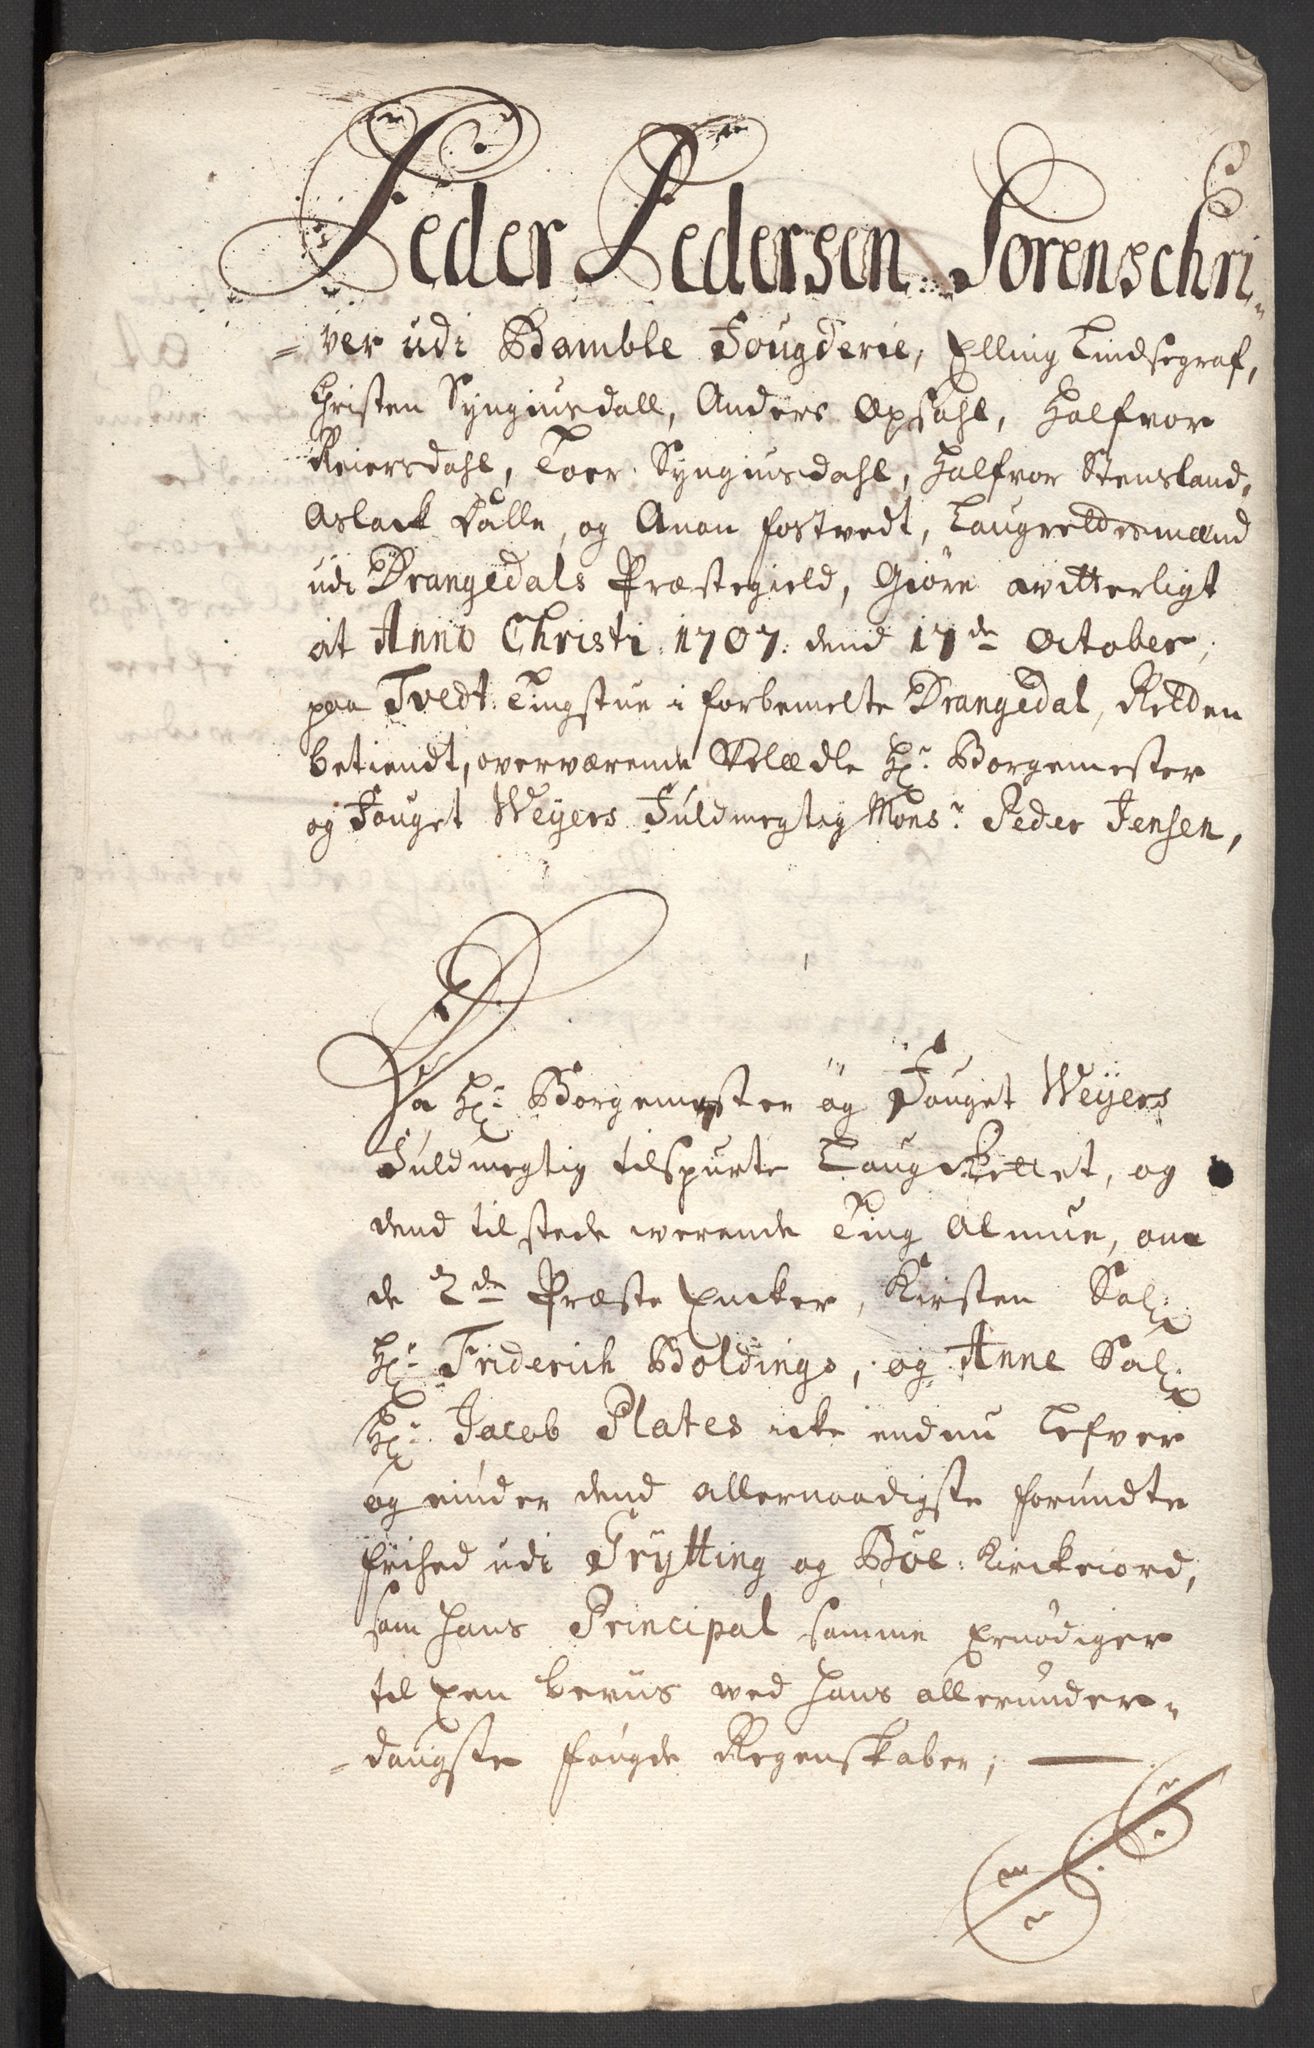 Peder Pedersen Sorenschri-
-ver udi Bamble Fougderie, Elling Lindsegraf,
Christen Syngiusdall, Anders Opsahl, Halfvor
Reiersdahl, Toer Syngiusdahl, Halfvor Stensland,
Aslack Dalle, og Anon Fostvedt, Laugrettesmænd
udi Drangedals Præstegield, Giöre vitterligt
at Anno Christi 1707. dend 17de October,
paa Tvedt Tingstue i forbemelte Drangedal, Retten
betiendt, overværende Velædle Hr. Borgemester
og Fouget Weyers Fuldmegtig Monsr. Peder Jensen,
Da Hr. Borgemester og Fouget Weyers
Fuldmegtig tilspurte Laug Rettet, og
dend tilstede werende Ting Almue, om
de 2de Præste Encker, Kirsten Sal:
Hr. Friderich Boldings, og Anne Sal:
Hr. Jacob Plates icke endnu Lefver
og niuder dend allernaadigste forundte
frihed udi Grytting og Böe Kirckeiord,
som hans Principal samme Ernödiger
til Een beviis ved hans allerunder-
-danigste fougde Regenskaber;